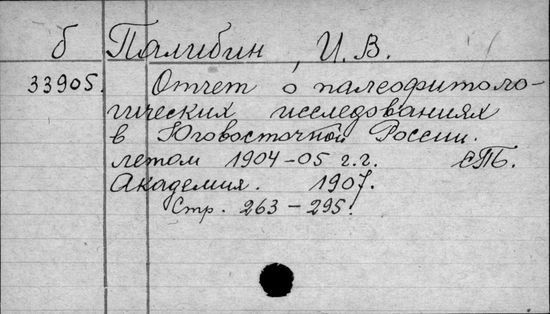 б Палибин, И. В.
33905. Отчет о палеофитоло-
гических исследованиях
в Юговосточной России.
летом 1904-05 г.г. СПб.
Академия. 1907.
Стр. 263-295.